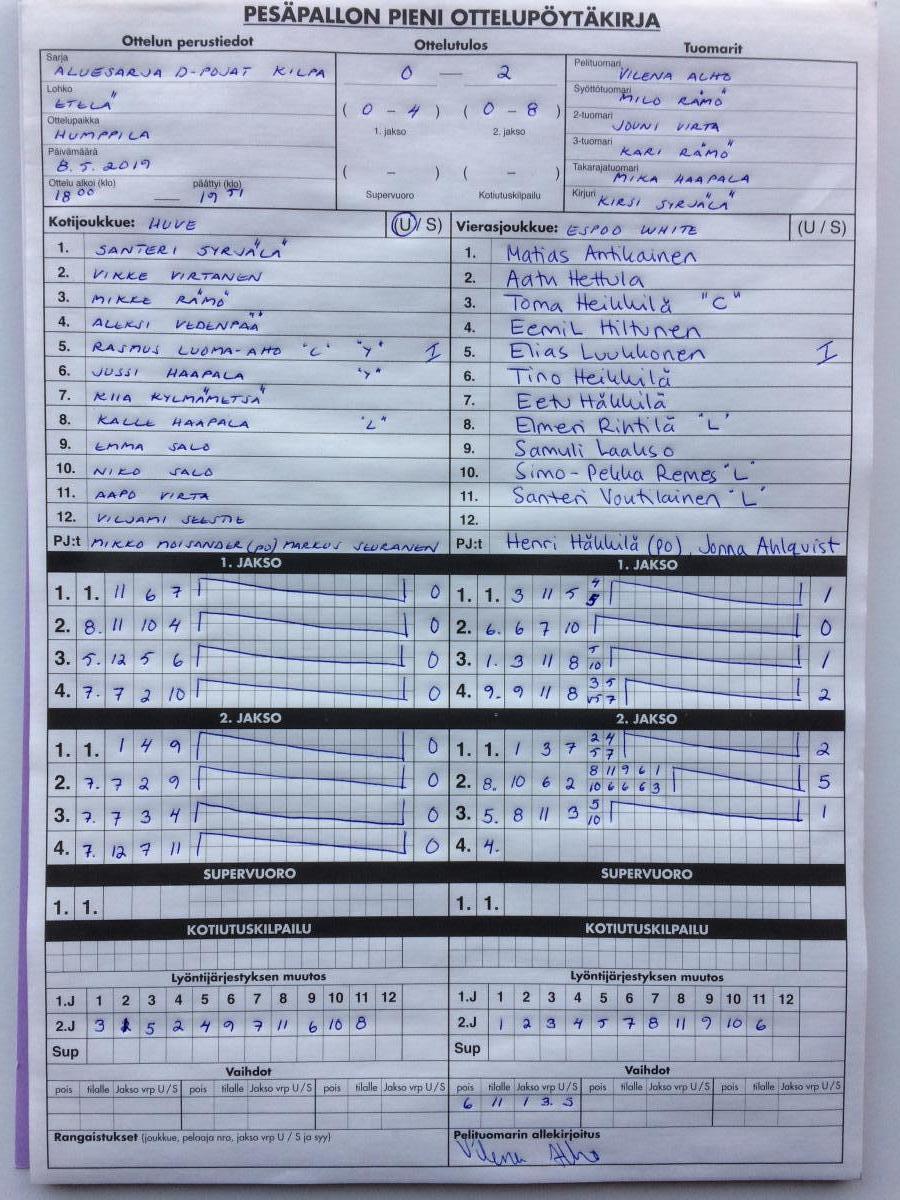 PESÄPALLON PIENI OTTELUPÖYTÄKIRJA
Ottelun perustiedot
Sarja
ALUESARJA D-POJAT KILPA
Lohko
ETELÄ
Ottelupaikka
HUMPPILA
Päivämäärä
8.5.2019
Ottelu alkoi (klo) päättyi (klo)
18 00 — 19 51
Ottelutulos
0 — 2
( 0 - 4 ) ( 0 - 8 )
1. jakso 2. jakso
( - ) ( - )
Supervuoro Kotiutuskilpailu
Tuomarit
Pelituomari VILENA ALHO
Syöttötuomari MILO RÄMÖ
2-tuomari JOUNI VIRTA
3-tuomari KARI RÄMÖ
Takarajatuomari MIKA HAAPALA
Kirjuri KIRSI SYRJÄLÄ
Kotijoukkue: HUVE (U / S)
1. SANTERI SYRJÄLÄ
2. VIKKE VIRTANEN
3. MIKKE RÄMÖ
4. ALEKSI VEDENPÄÄ
5. RASMUS LUOMA-AHO "C" "Y" I
6. JUSSI HAAPALA "Y"
7. KIIA KYLMÄMETSÄ
8. KALLE HAAPALA "L"
9. EMMA SALO
10. NIKO SALO
11. AAPO VIRTA
12. VILJAMI SEESTIE
PJ:t MIKKO MOISANDER (PO) MARKUS SEURANEN
Vierasjoukkue: ESPOO WHITE (U / S)
1. Matias Antikainen
2. Aatu Hettula
3. Toma Heikkilä "C"
4. Eemil Hiltunen
5. Elias Luukkonen I
6. Tino Heikkilä
7. Eetu Häkkilä
8. Elmeri Rintilä "L"
9. Samuli Laakso
10. Simo-Pekka Remes "L"
11. Santeri Voutilainen "L"
12.
PJ:t Henri Häkkilä (po), Jonna Ahlqvist
1. JAKSO
1. 1. 11 6 7 0
2. 8. 11 10 4 0
3. 5. 12 5 6 0
4. 7. 7 2 10 0
2. JAKSO
1. 1. 1 4 9 0
2. 7. 7 2 9 0
3. 7. 7 3 4 0
4. 7. 12 7 11 0
SUPERVUORO
1. 1.
KOTIUTUSKILPAILU
1. JAKSO
1. 1. 3 11 5 4 5 1
2. 6. 6 7 10 0
3. 1. 3 11 8 5 10 1
4. 9. 9 11 8 3 5 5 7 2
2. JAKSO
1. 1. 1 3 7 2 4 5 7 2
2. 8. 10 6 2 8 11 9 6 1 10 6 6 6 3 5
3. 5. 8 11 3 5 10 1
4. 4.
SUPERVUORO
1. 1.
KOTIUTUSKILPAILU
Lyöntijärjestyksen muutos
1.J 1 2 3 4 5 6 7 8 9 10 11 12
2.J 3 1 5 2 4 9 7 11 6 10 8
Sup
Vaihdot
pois tilalle Jakso vrp U/S pois tilalle Jakso vrp U/S pois tilalle Jakso vrp U/S
Rangaistukset (joukkue, pelaaja nro, jakso vrp U / S ja syy)
Lyöntijärjestyksen muutos
1.J 1 2 3 4 5 6 7 8 9 10 11 12
2.J 1 2 3 4 5 7 8 11 9 10 6
Sup
Vaihdot
pois tilalle Jakso vrp U/S pois tilalle Jakso vrp U/S pois tilalle Jakso vrp U/S
6 11 1 3. S
Pelituomarin allekirjoitus
Vilena Alho